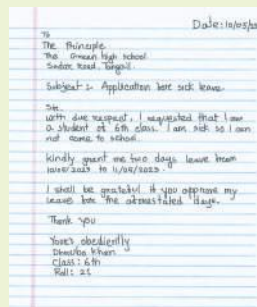 Date: 10/05/20
To
The Principle
The Green high school
Sador Road, Tangail.
Subject :- Application fore sick leave.
Sir,
With due respect, I requested that I am
a student of 6th class. I am sick so I can
not come to school.
Kindly grant me two days leave from
10/05/2023 to 11/05/2023.
I shall be grateful if you approve my
leave fore the aforestated days.
Thank you
Yours obediently
Khan
Class: 6th
Roll: 25